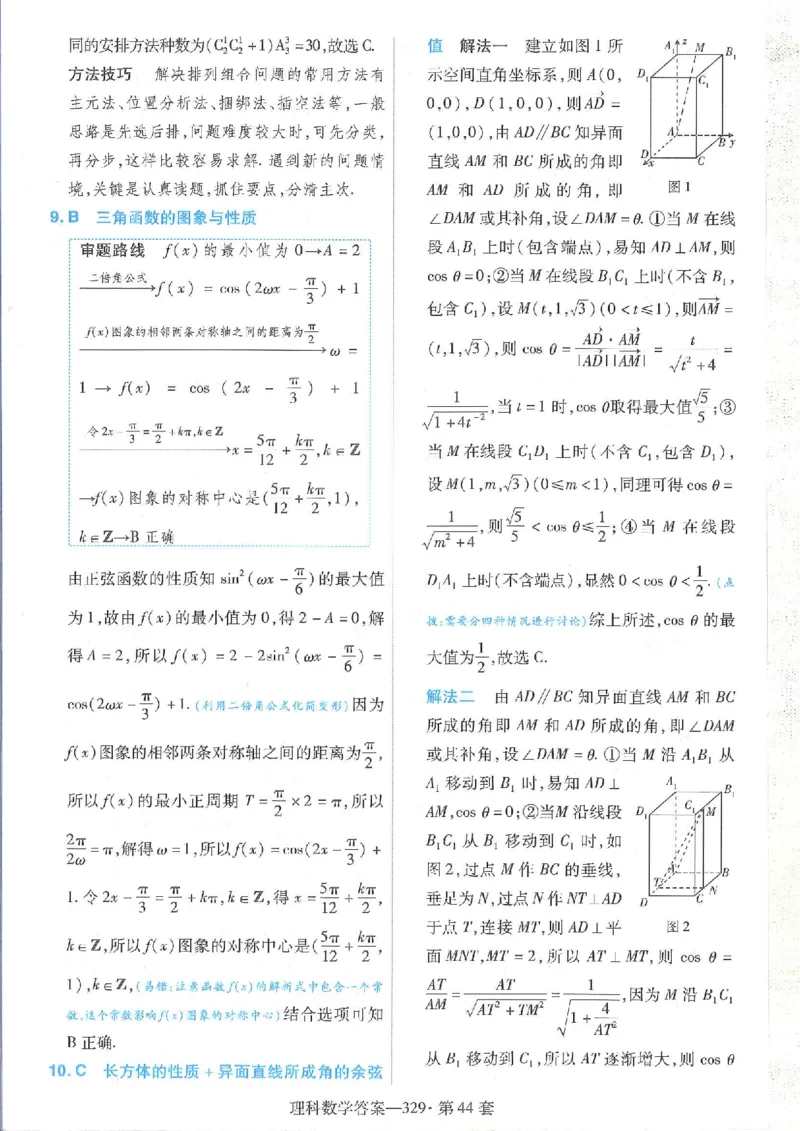 同的安排方法种数为(C₂¹C₂¹+1)A₃³=30,故选 C.
方法技巧 解决排列组合问题的常用方法有
主元法、位置分析法、捆绑法、插空法等,一般
思路是先选后排,问题难度较大时,可先分类,
再分步,这样比较容易求解. 遇到新的问题情
境,关键是认真读题,抓住要点,分清主次.
9. B 三角函数的图象与性质
审题路线 f(x)的最小值为 0→A=2
二倍角公式→f(x)=cos(2ωx-π/3)+1
f(x)图象的相邻两条对称轴之间的距离为π/2→ω=
1→f(x)=cos(2x-π/3)+1
令2x-π/3=π/2+kπ,k∈Z→x=5π/12+kπ/2,k∈Z
→f(x)图象的对称中心是(5π/12+kπ/2,1),
k∈Z→B 正确
由正弦函数的性质知 sin²(ωx-π/6)的最大值
为 1,故由 f(x)的最小值为 0,得 2-A=0,解
得 A=2,所以 f(x)=2-2sin²(ωx-π/6)=
cos(2ωx-π/3)+1.(利用二倍角公式化简变形)因为
f(x)图象的相邻两条对称轴之间的距离为π/2,
所以 f(x)的最小正周期 T=π/2×2=π,所以
2π/2ω=π,解得 ω=1,所以 f(x)=cos(2x-π/3)+
1. 令 2x-π/3=π/2+kπ,k∈Z,得 x=5π/12+kπ/2,
k∈Z,所以 f(x)图象的对称中心是(5π/12+kπ/2,
1),k∈Z,(易错:注意函数f(x)的解析式中包含一个常
数,这个常数影响f(x)图象的对称中心)结合选项可知
B 正确.
10. C 长方体的性质+异面直线所成角的余弦
值 解法一 建立如图 1 所
示空间直角坐标系,则 A(0,
0,0),D(1,0,0),则AD→=
(1,0,0),由 AD∥BC 知异面
直线 AM 和 BC 所成的角即
AM 和 AD 所成的角,即
A₁ z M B₁
D₁ C₁
A B y
D x C
图 1
∠DAM 或其补角,设∠DAM=θ. ①当 M 在线
段 A₁B₁ 上时(包含端点),易知 AD⊥AM,则
cos θ=0;②当 M 在线段 B₁C₁ 上时(不含 B₁,
包含 C₁),设 M(t,1,√3)(0<t≤1),则AM→=
(t,1,√3),则 cos θ=AD→·AM→/|AD→||AM→|=t/√(t²+4)=
1/√(1+4t⁻²),当 t=1 时,cos θ取得最大值√5/5;③
当 M 在线段 C₁D₁ 上时(不含 C₁,包含 D₁),
设 M(1,m,√3)(0≤m<1),同理可得 cos θ=
1/√(m²+4),则√5/5<cos θ≤1/2;④当 M 在线段
D₁A₁ 上时(不含端点),显然 0<cos θ<1/2.(点
拨:需要分四种情况进行讨论)综上所述,cos θ 的最
大值为1/2,故选 C.
解法二 由 AD∥BC 知异面直线 AM 和 BC
所成的角即 AM 和 AD 所成的角,即∠DAM
或其补角,设∠DAM=θ. ①当 M 沿 A₁B₁ 从
A₁ 移动到 B₁ 时,易知 AD⊥
AM,cos θ=0;②当M 沿线段
B₁C₁ 从 B₁ 移动到 C₁ 时,如
图 2,过点 M 作 BC 的垂线,
垂足为 N,过点 N 作 NT⊥AD
于点 T,连接 MT,则 AD⊥平
A₁ B₁
D₁ C₁ M
A B
T N
D C
图 2
面 MNT,MT=2,所以 AT⊥MT,则 cos θ=
AT/AM=AT/√(AT²+TM²)=1/√(1+4/AT²),因为 M 沿 B₁C₁
从 B₁ 移动到 C₁,所以 AT 逐渐增大,则 cos θ
理科数学答案—329·第 44 套